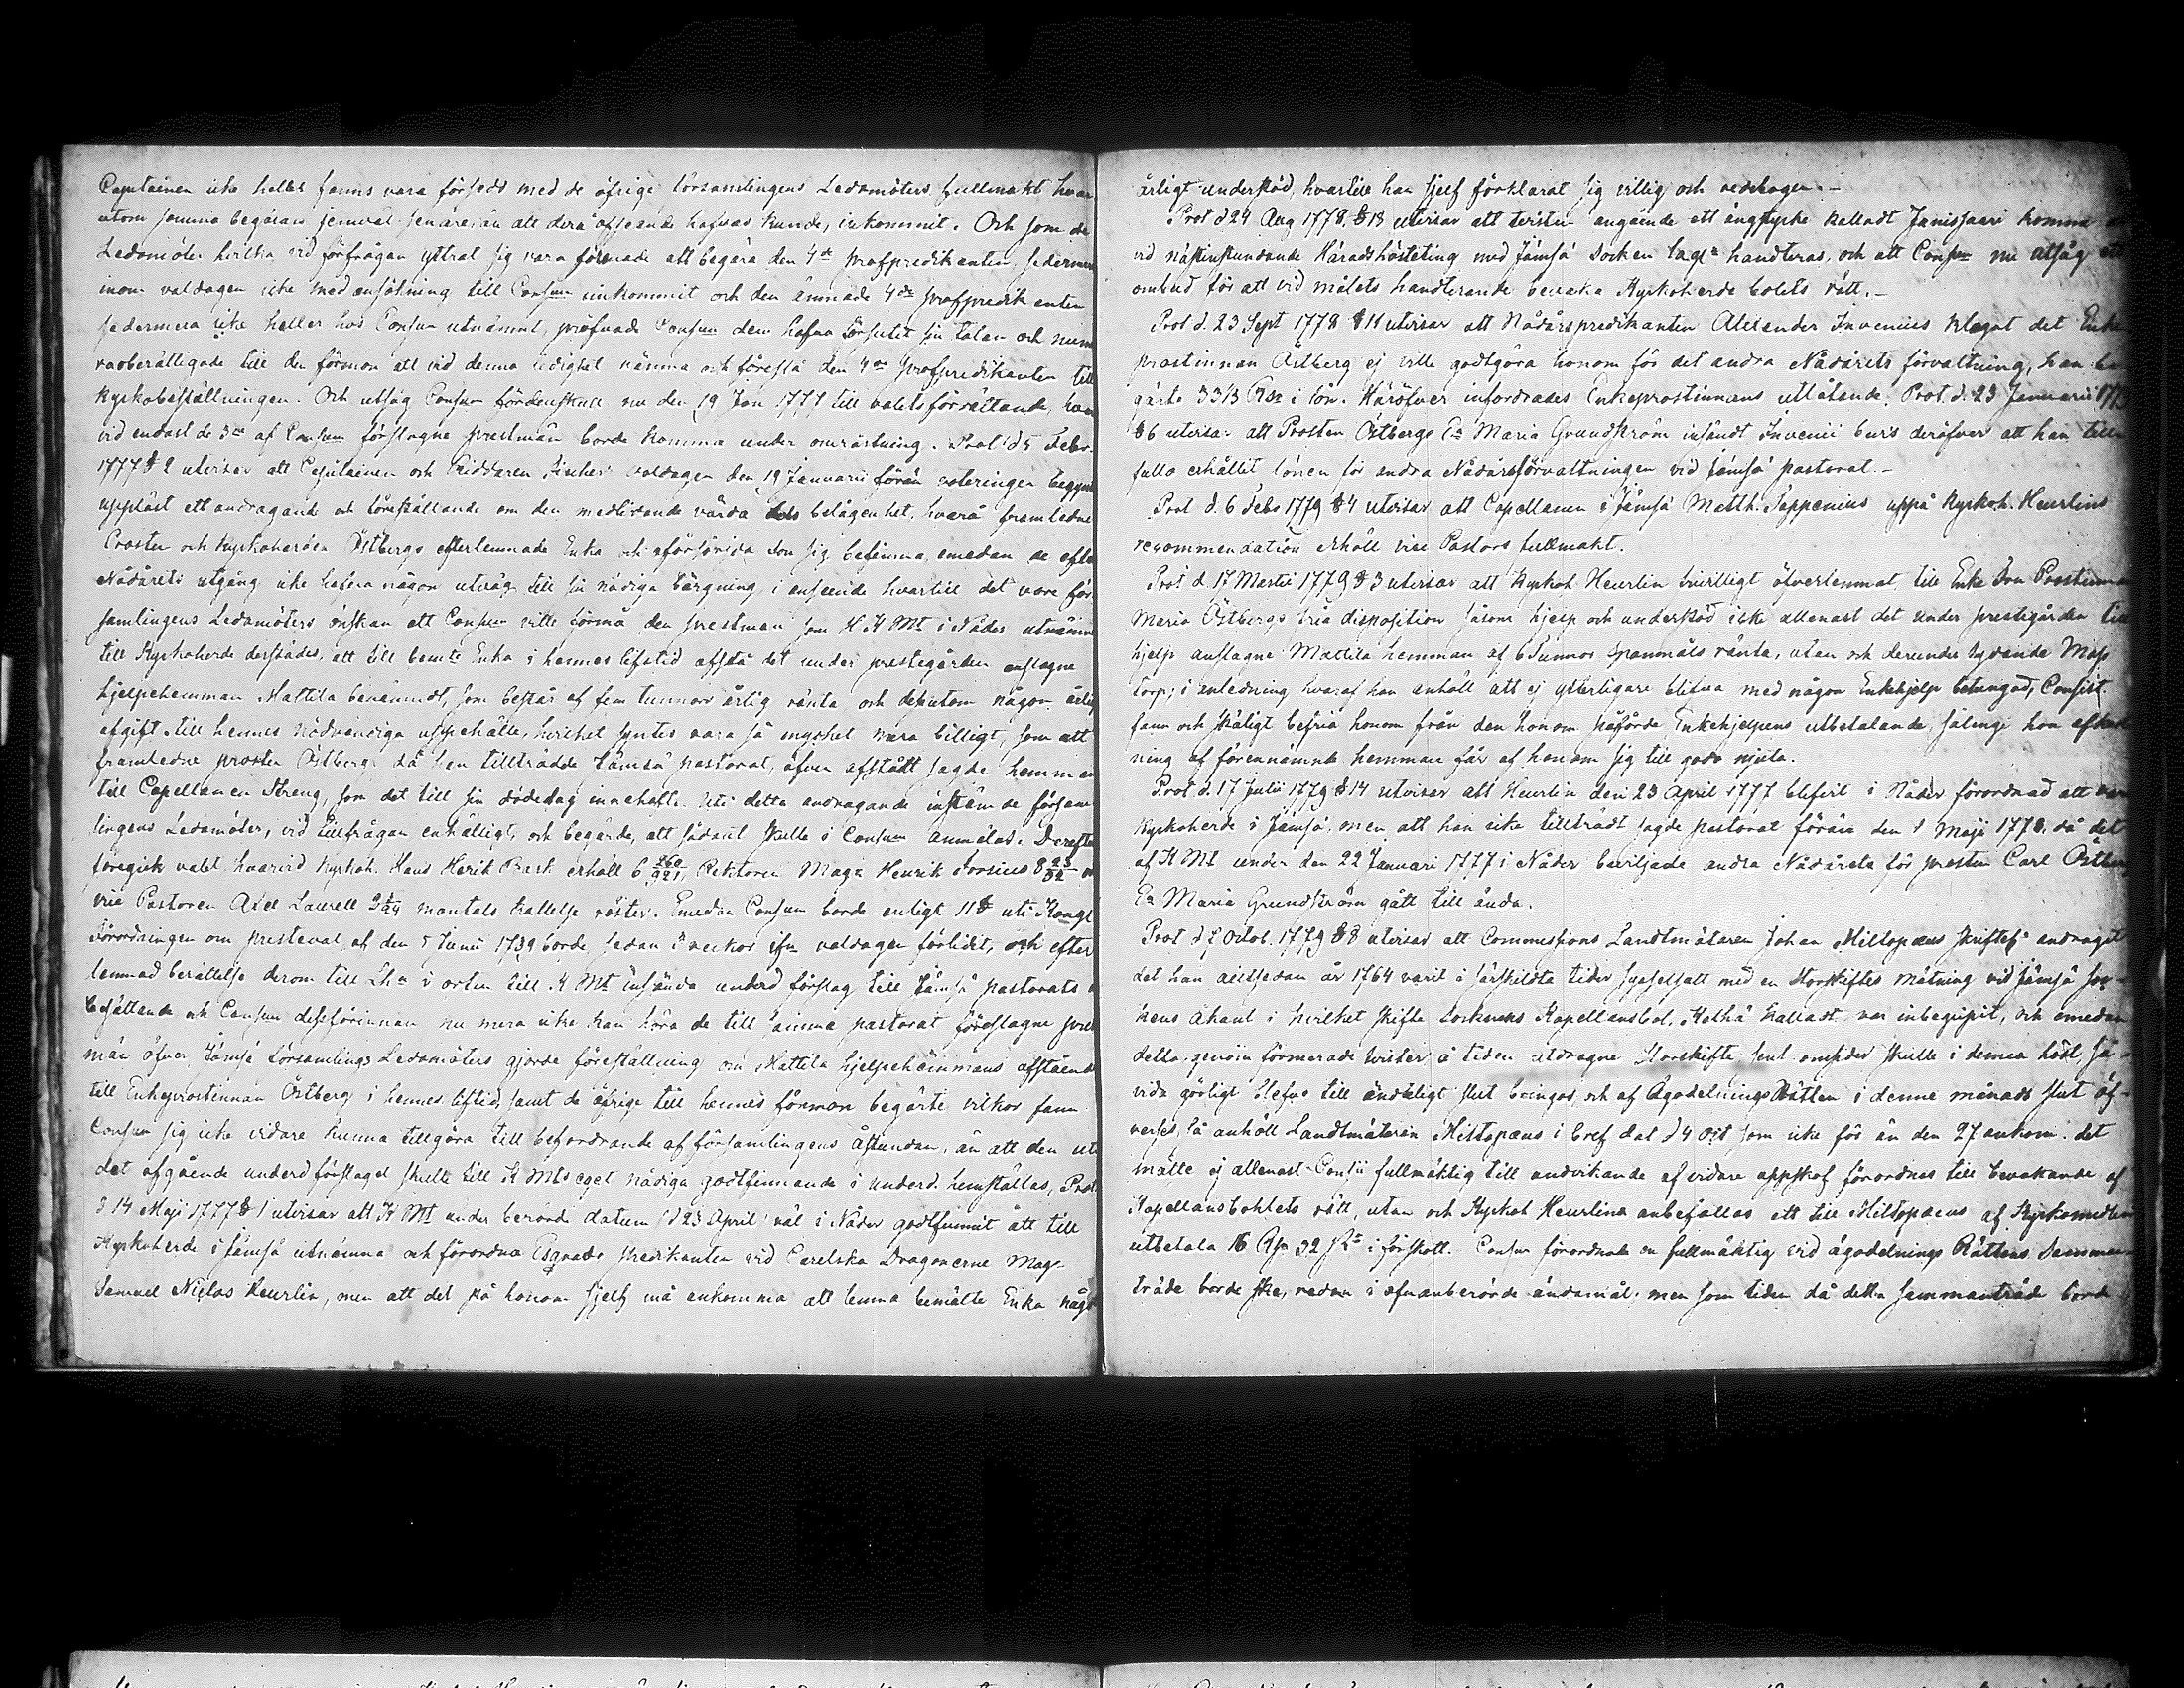 Capitainen icke heller fanns vara försedd med de öfrige församlingens Ledamöters fullmakt hvar
utom samma begäran jemväl senare, än att derå afseende hafvas kunde, inkommit. Och som de
Ledamöter hvilka vid förfrågan yttrat sig vara försinade att begära den 4de profpredikanten sedermera
inom valdagen icke med ansökning till Consum inkommit och den ämnade 4de profpredikanten
sedermera icke heller hos Consum utnämnt, pröfvade Consum dem hafva försutit sin talan och
raoberättigade till den förmon att vid denna ledighet nämna och föreslå den 4de profpredikanten till
kyrkobeställningen. Och utsåg Consum fördenskull nu den 19 Jan 1777 till valets förrättande, hvar
vid endast de 3ne af Consum förslagne prestmän borde komma under omröstning. Prot d 5 Febr.
1777 § 2 utvisar att Capitainen och Riddaren Fischer valdagen den 19 Januarii förän voteringen begynt
uppläst ett andragande och föreställande om den medlidande värda belägenhet, hvarå framledne
Prosten och Kyrkoherden Östbergs efterlemnade Enka och oförsörjda don sig befinna, emedan de efter
Nådårets utgång icke hafva någon utväg till sin nödiga bärgning, i anseende hvartill det vore för-
samlingens Ledamöters önskan att Consum ville förmå den prestman som K Mt i Nåder utnämner
till Kyrkoherde derstädes, att till bemte Enka i hennes lifstid afstå det under prestegården anslagne
hjelpehemman Mattila benämndt, som består af fem tunnor årlig ränta och dessutom någon årlig
afgift till hennes nödvändiga uppehälle, hvilket syntes vara så mycket mera billigt, som att
framledne prosten Östberg då han tillträdde Jämsä pastorat, äfven afstått sagde hemman
till Capellanen Streng, som det till sin dödedag innehafte. Uti detta andragande instämde försam
lingens Ledamöter, vid tillfrågan enhälligt, och begärde, att sådant skulle i Consum anmälas. Derefter
föregick valet, hvarvid Kyrkoh. Hans Henrik Bask erhöll 6 260/921, Rektoren Mag Henrik Forsius 8 23/32
vice Pastoren Axel Laurell 2 1/24 mantals kallelse röster. Emedan Consum borde enligt 11 § uti Kongl
Förordningen om presteval af den 5 Junii 1739 borde, sedan 3 veckor ifrn valdagen förlidit, och efter
lemnad berättelse derom till Lhn i orten till K Mt insända underd förslag till Jämsä pastorats
besättande och Consum dessförinnan nu mera icke kan höra de till samma pastorat föreslagne prest
män öfver Jämsä församlings Ledamöters gjorde föreställning om Mattila hjelpehemmans afstående
till Enkeprostinnan Östberg i hennes lifstid, samt de öfrige till hennes förmon begärte vilkor fann
Consum sig icke vidare kunna tillgöra till befordrande af församlingens åstundan, än att den uti
det afgående underd förslaget skulle till K Mts eget nådiga godtfinnande i underd. hemställas, Prot.
d 14 Maji 1777 § 1 utvisar att K Mt under berörde datum (d 23 April) väl i Nåder godtfunnit att till
Kyrkoherde i Jämsä utnämna och förordna Esqvads predikanten vid Carelska Dragonerne Mag
Samuel Niclas Heurlin, men att det på honom sjelf må ankomma att lemna bemälte Enka något
årligt understöd, hvartill han sjelf förklarat sig villig och redebogen.—
Prot d 24 Aug 1778 § 13 utvisar att tvisten angående ett ängstycke kalladt Janissaari komme
vid nästinstundande Häradshösteting med Jämsä Socken lagl handteras, och att Consum nu utsåg ett
ombud för att vid målets handterande bevaka Kyrkoherde bolets rätt.—
Prot d. 23 Sept 1778 § 11 utvisar att Nådårspredikanten Alexander Invenius klagat det Enke
prostinnan Östberg ej ville godtgöra honom för det andra Nådårets förvaltning, han be
gärte 33 1/3 Rdr i lön. Häröfver infordrades Enkeprostinnans utlåtande. Prot. d. 23 Januarii 1779
§ 6 utvisar att Prosten Östbergs Ea Maria Grundström insändt Invenii bevis deröfver att han till
fullo erhållit lönen för andra Nådårsförvaltningen vid Jämsä pastorat.—
Prot d. 6 Febr 1779 § 4 utvisar att Capellanen i Jämsä Matth. Sappenius uppå Kyrkoh. Heurlins
recommendation erhöll vice Pastors fullmakt.
Prot d 17 Martii 1779 § 3 utvisar att Kyrkoh Heurlin frivilligt öfverlemnat till Enke Fru Prostinnan
Maria Östbergs fria disposition såsom hjelp och understöd icke allenast det under prestegården till
hjelp anslagne Mattila hemman af 6 Tunnor spanmåls ränta, utan och derunder lydande Mäs
torp; i anledning hvaraf han anhöll att ej ytterligare blifva med någon Enkehjelp betungad, Consist.
fann och skäligt befria honom från den honom påförde Enkehjelpens utbetalande, sålänge hon afkast
ning af förennämnde hemman får af honom sig till godo njuta.
Prot d. 17 Julii 1779 § 14 utvisar att Heurlin den 23 April 1777 blifvit i Nåder förordnad att vara
Kyrkoherde i Jämsä, men att han icke tillträdt sagde pastorat förän den 1 Maji 1778, då det
af K Mt under den 22 Januari 1777 i Nåder beviljade andra Nådåret för prosten Carl Östbergs
Ea Maria Grundström gått till ända.
Prot d 7 Octob. 1779 § 8 utvisar att Commissions Landtmätaren Johan Miltopæus skriftel. andragit
det han alltsedan år 1764 varit i särskildta tider sysselsatt med en Storskiftes mätning vid Jämsä soc-
kens åkant i hvilket skifte sockneens Kapellansbol, Kolhå kalladt, var inbegripit, och emedan
detta genom förmerade tvister å tiden utdragne Storskifte sent omsider skulle i denna höst, så-
vida görligt blefve till ändteligt slut bringas, och af ÄgodelningsRätten i denne månads slut öf-
verses, så anhöll Landtmätaren Miltopæus i bref dat d 4 oct som icke för än den 27 ankom, det
måtte ej allenast Consii fullmäktig till undvikande af vidare uppskof förordnas till bevakande af
Kapellansbohlets rätt, utan och Kyrkoh Heurlin anbefallas att till Miltopæus af Kyrkomedlen
utbetala 16 Rdr 32 sk i förskott. Consum förordnade en fullmäktig vid ägodelnings Rättens Samman
träde borde ske, redan i ofvanberörde ändamål; men som tiden då detta sammanträde borde